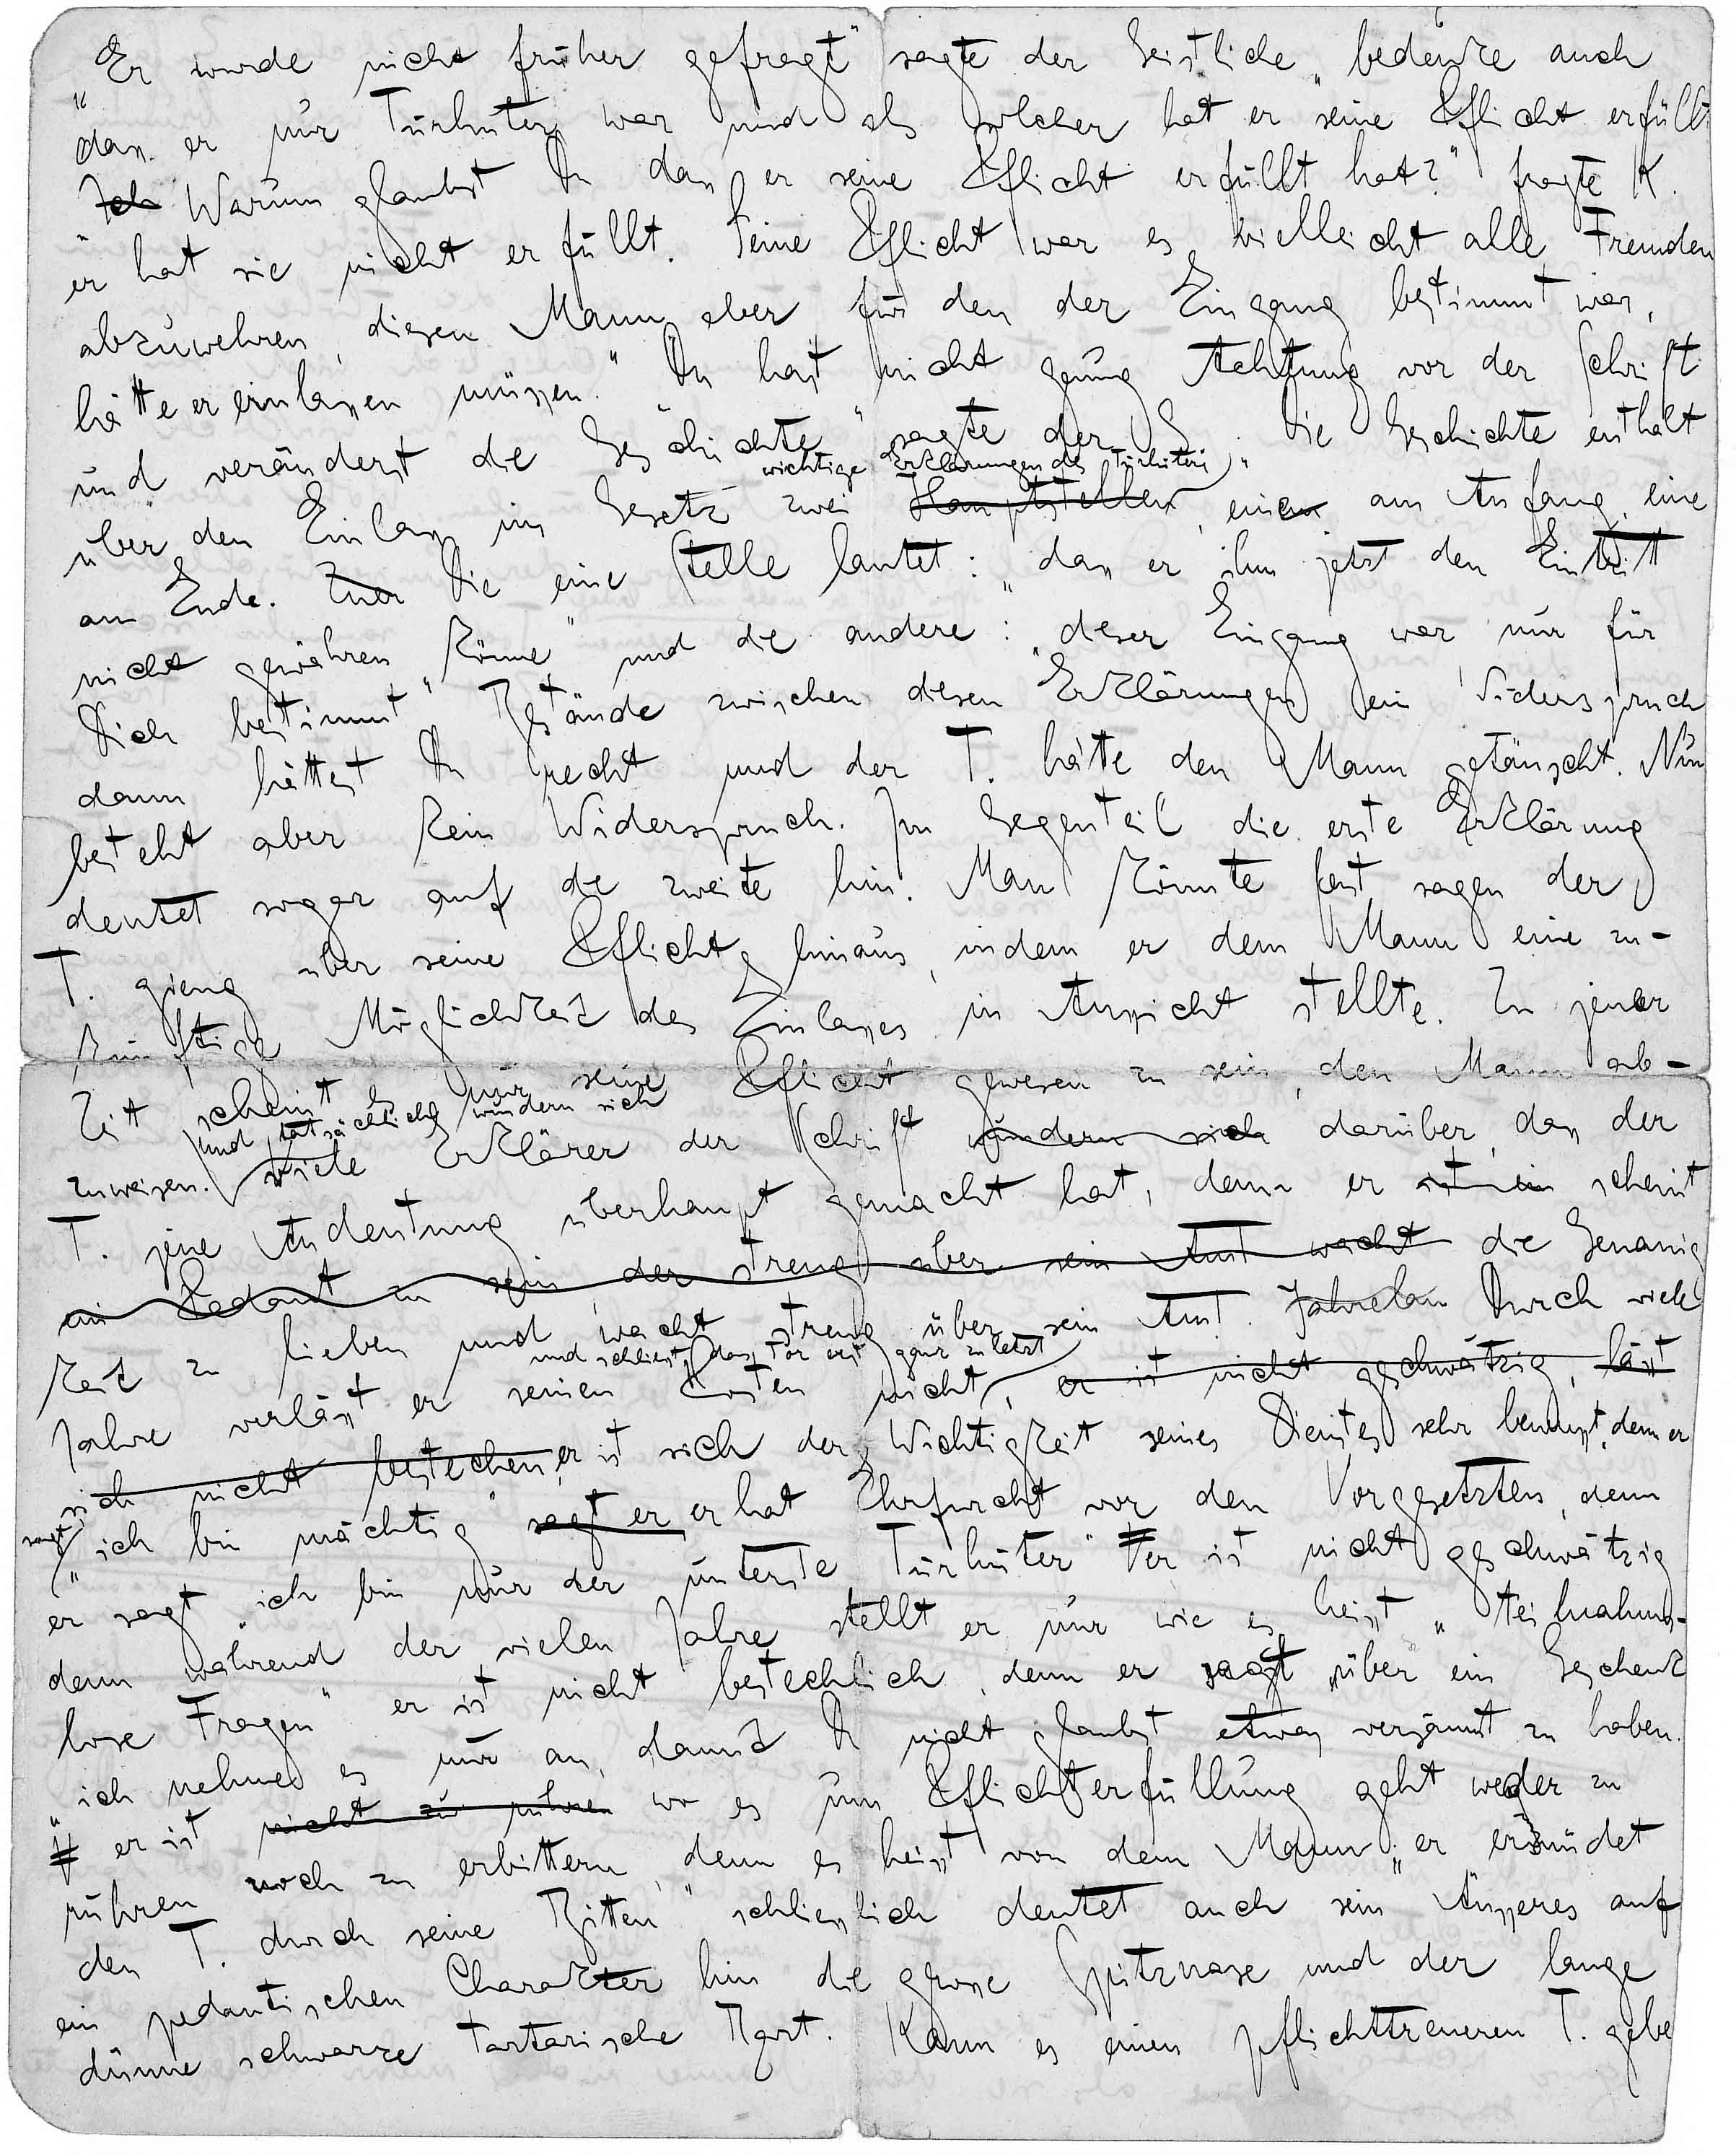 „Er wurde nicht früher gefragt“ sagte der Geistliche „bedenke auch
dass er nur Türhüter war und als solcher hat er seine Pflicht erfüllt
Ich Warum glaubst Du dass er seine Pflicht erfüllt hat?“ fragte K.
„er hat sie nicht erfüllt. Seine Pflicht war es vielleicht alle Fremden
abzuwehren, diesen Mann aber für den der Eingang bestimmt war,
hätte er einlassen müssen.“ „Du hast nicht genug Achtung vor der Schrift
und veränderst die Geschichte“ sagte der G. „Die Geschichte enthält
wichtige Erklärungen des Türhüters
über den Einlass ins Gesetz zwei Hauptstellen, eine am Anfang, eine
am Ende. Die eine Stelle lautet: „dass er ihm jetzt den Eintritt
nicht gewähren könne“ und die andere: „dieser Eingang war nur für
Dich bestimmt“ Bestände zwischen diesen Erklärungen ein Widerspruch
dann hättest Du recht und der T. hätte den Mann getäuscht. Nun
besteht aber kein Widerspruch. Im Gegenteil die erste Erklärung
deutet sogar auf die zweite hin. Man könnte fast sagen der
T. gieng über seine Pflicht hinaus, indem er dem Mann eine zu-
künftige Möglichkeit des Einlasses in Aussicht stellte. Zu jener
Zeit scheint es nur seine Pflicht gewesen zu sein, den Mann ab-
und tatsächlich wundern sich
zuweisen. viele Erklärer der Schrift wundern sich darüber, dass der
T. jene Andeutung überhaupt gemacht hat, denn er ist ein scheint
ein Pedant zu sein der streng über sein Amt wacht die Genauig
keit zu lieben und wacht streng über sein Amt. Jahrelan Durch viele
und schliesst das Tor erst ganz zuletzt
Jahre verlässt er seinen Posten nicht, er ist nicht geschwätzig, lässt
sich nicht bestechen, er ist sich der Wichtigkeit seines Dienstes sehr bewusst, denn er
sagt „ich bin mächtig“ sagt er er hat Ehrfurcht vor den Vorgesetzten, denn
er sagt „ich bin nur der unterste Türhüter“ er ist nicht geschwätzig
denn während der vielen Jahre stellt er nur wie es heisst „teilnahms-
lose Fragen“ er ist nicht bestechlich, denn er sagt über ein Geschenk
„ich nehme es nur an, damit Du nicht glaubst etwas versäumt zu haben.“
er ist nicht zu rühren wo es um Pflichterfüllung geht weder zu
rühren noch zu erbittern, denn es heisst von dem Mann „er ermüdet
den T. durch seine Bitten“ schliesslich deutet auch sein Äusseres auf
ein pedantischen Charakter hin die grosse Spitznase und der lange
dünne schwarze tartarische Bart. Kann es einen pflichttreueren T. gebe